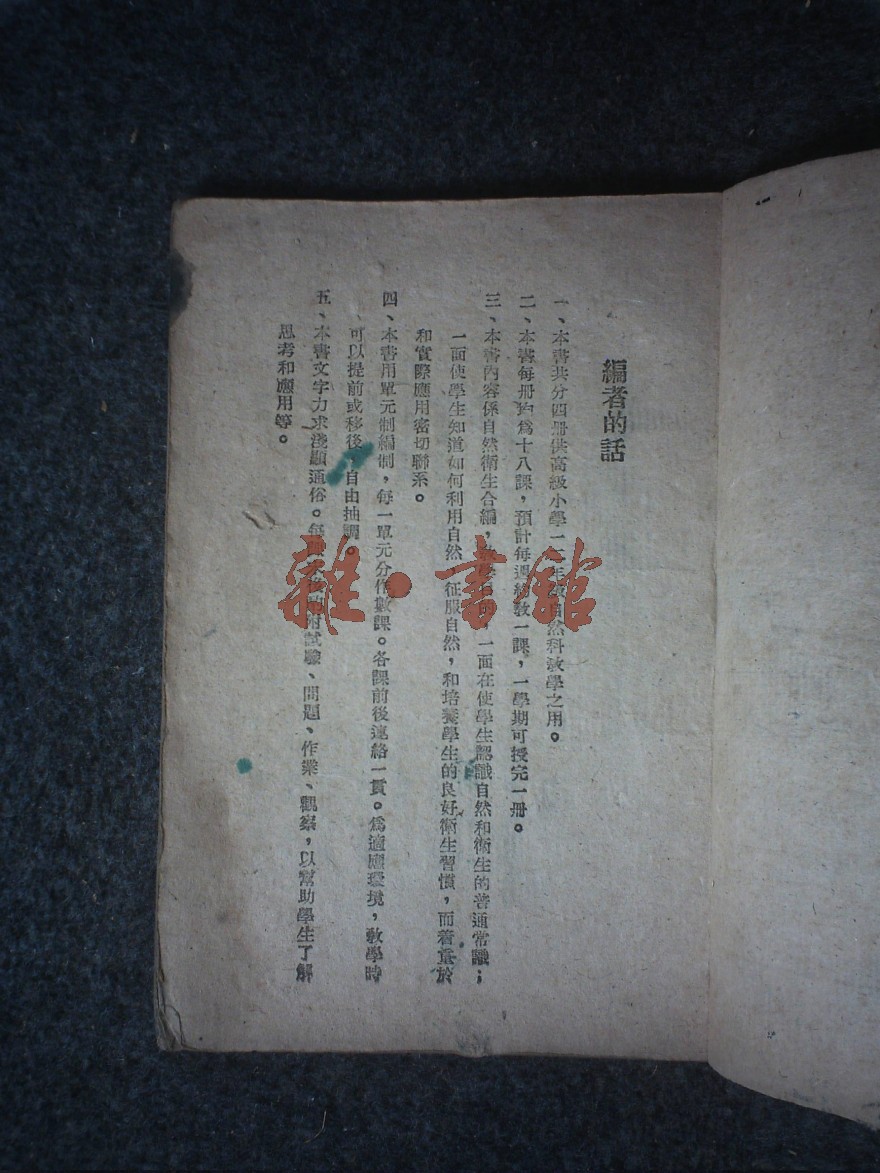 編者的話
一、本書共分四冊供高級小學一二年級自然科教學之用。
二、本書每冊約爲十八課，預計每週約教一課，一學期可授完一冊。
三、本書內容係自然衞生合編，一面在使學生認識自然和衞生的普通常識；
一面使學生知道如何利用自然，征服自然，和培養學生的良好衞生習慣，而着重於
和實際應用密切聯系。
四、本書用單元制編制，每一單元分作數課。各課前後連絡一貫。爲適應環境，教學時
可以提前或移後，自由抽調。
五、本書文字力求淺顯通俗。每課附試驗、問題、作業、觀察，以幫助學生了解
思考和應用等。
雜·書館